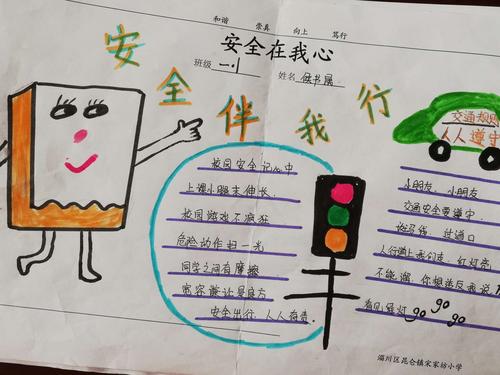 和谐 崇真 向上 笃行
安全在我心
班级 一.1 姓名 侯书展
安全伴我行
校园安全记心中
上课小腿末伸长
校园游戏不疯狂
危险动作扫一光
同学之间有摩擦
宽容兼让具良方
安全出行 人人有责
交通规则
人人遵守
小朋友 小朋友
交通安全要遵守
斑马线 过通口
人行道上我们走 红灯亮
不能溜 你想活反我说
看见绿灯 go go go
淄川区昆仑镇宋家坊小学